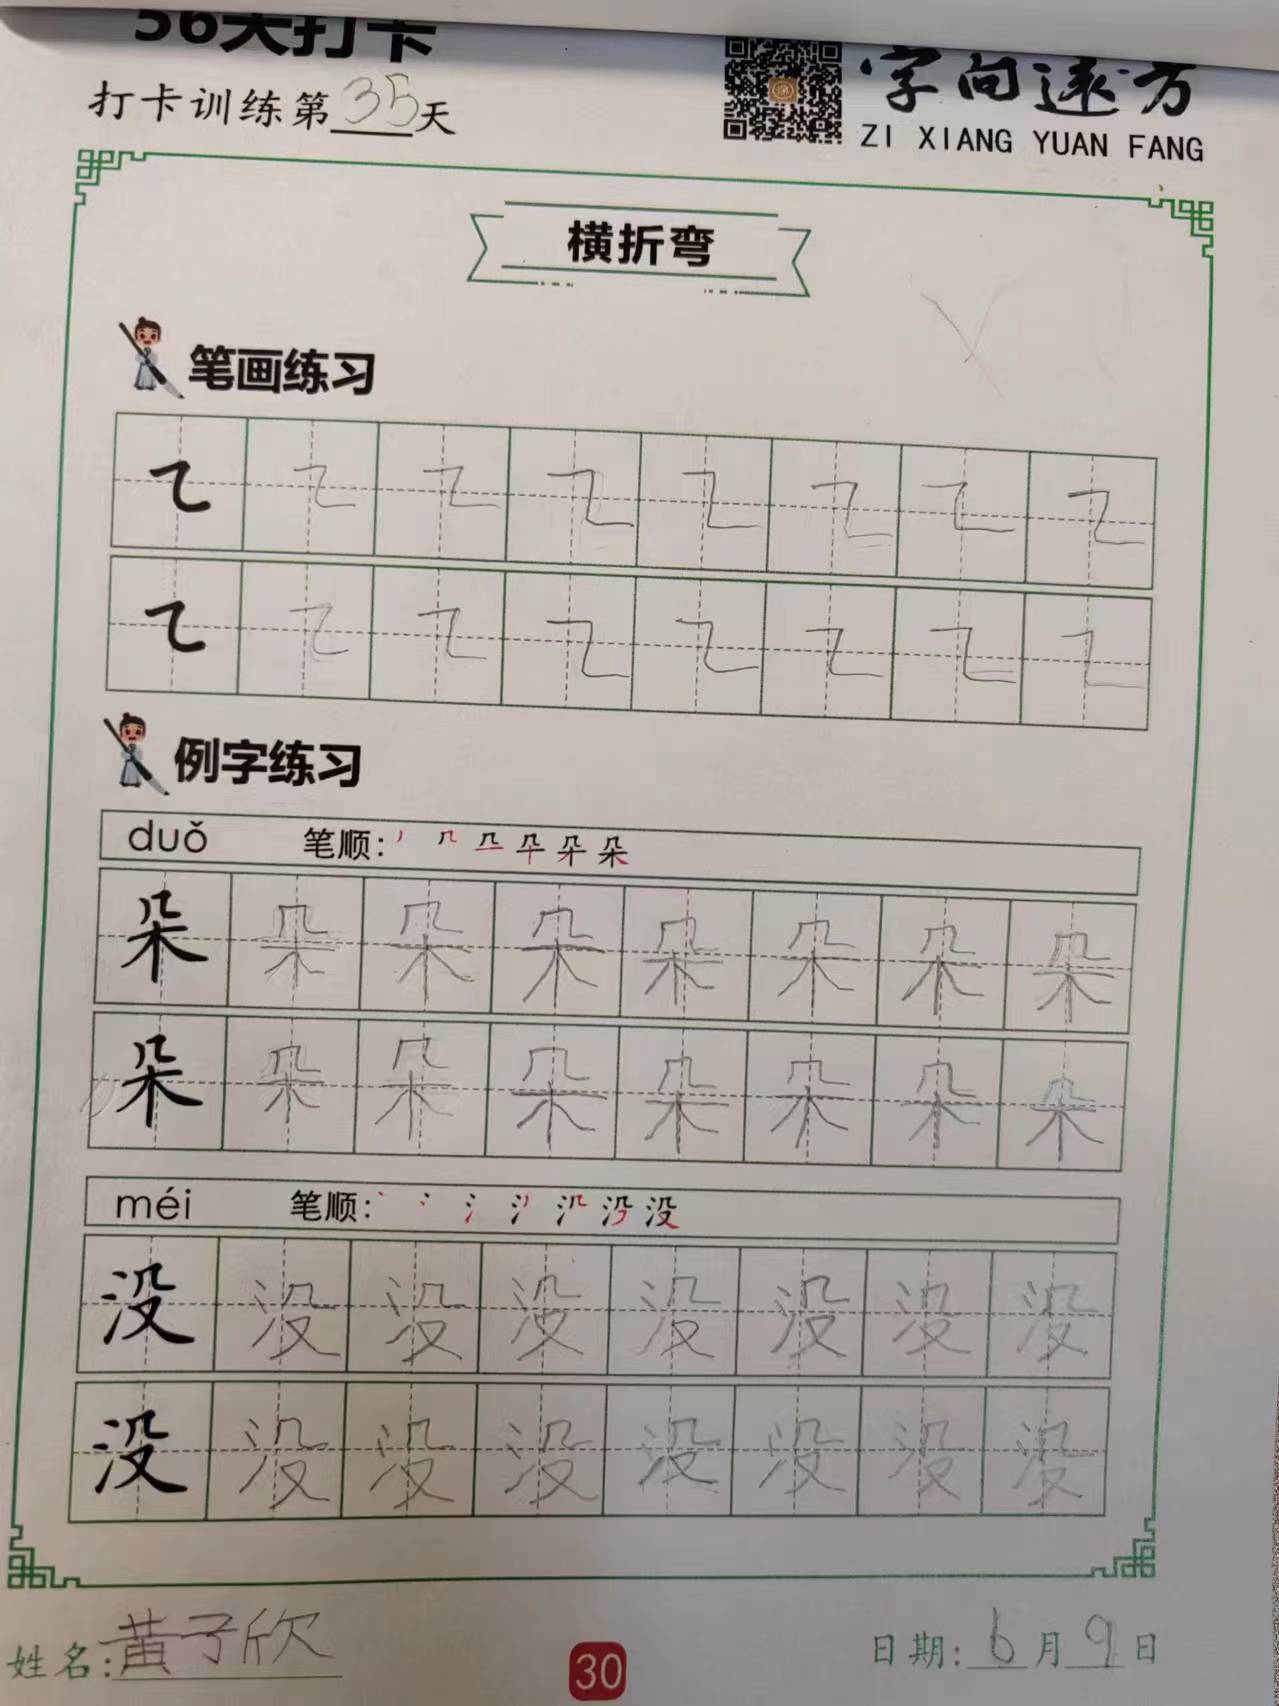 56天打卡
打卡训练第35天
字向远方
ZI XIANG YUAN FANG
横折弯
笔画练习
㇍ ㇍ ㇍ ㇍ ㇍ ㇍ ㇍ ㇍
㇍ ㇍ ㇍ ㇍ ㇍ ㇍ ㇍ ㇍
例字练习
duǒ 笔顺:
朵 朵 朵 朵 朵 朵 朵 朵
朵 朵 朵 朵 朵 朵 朵 朵
méi 笔顺:
没 没 没 没 没 没 没 没
没 没 没 没 没 没 没 没
姓名:黄子欣
30
日期:6月9日